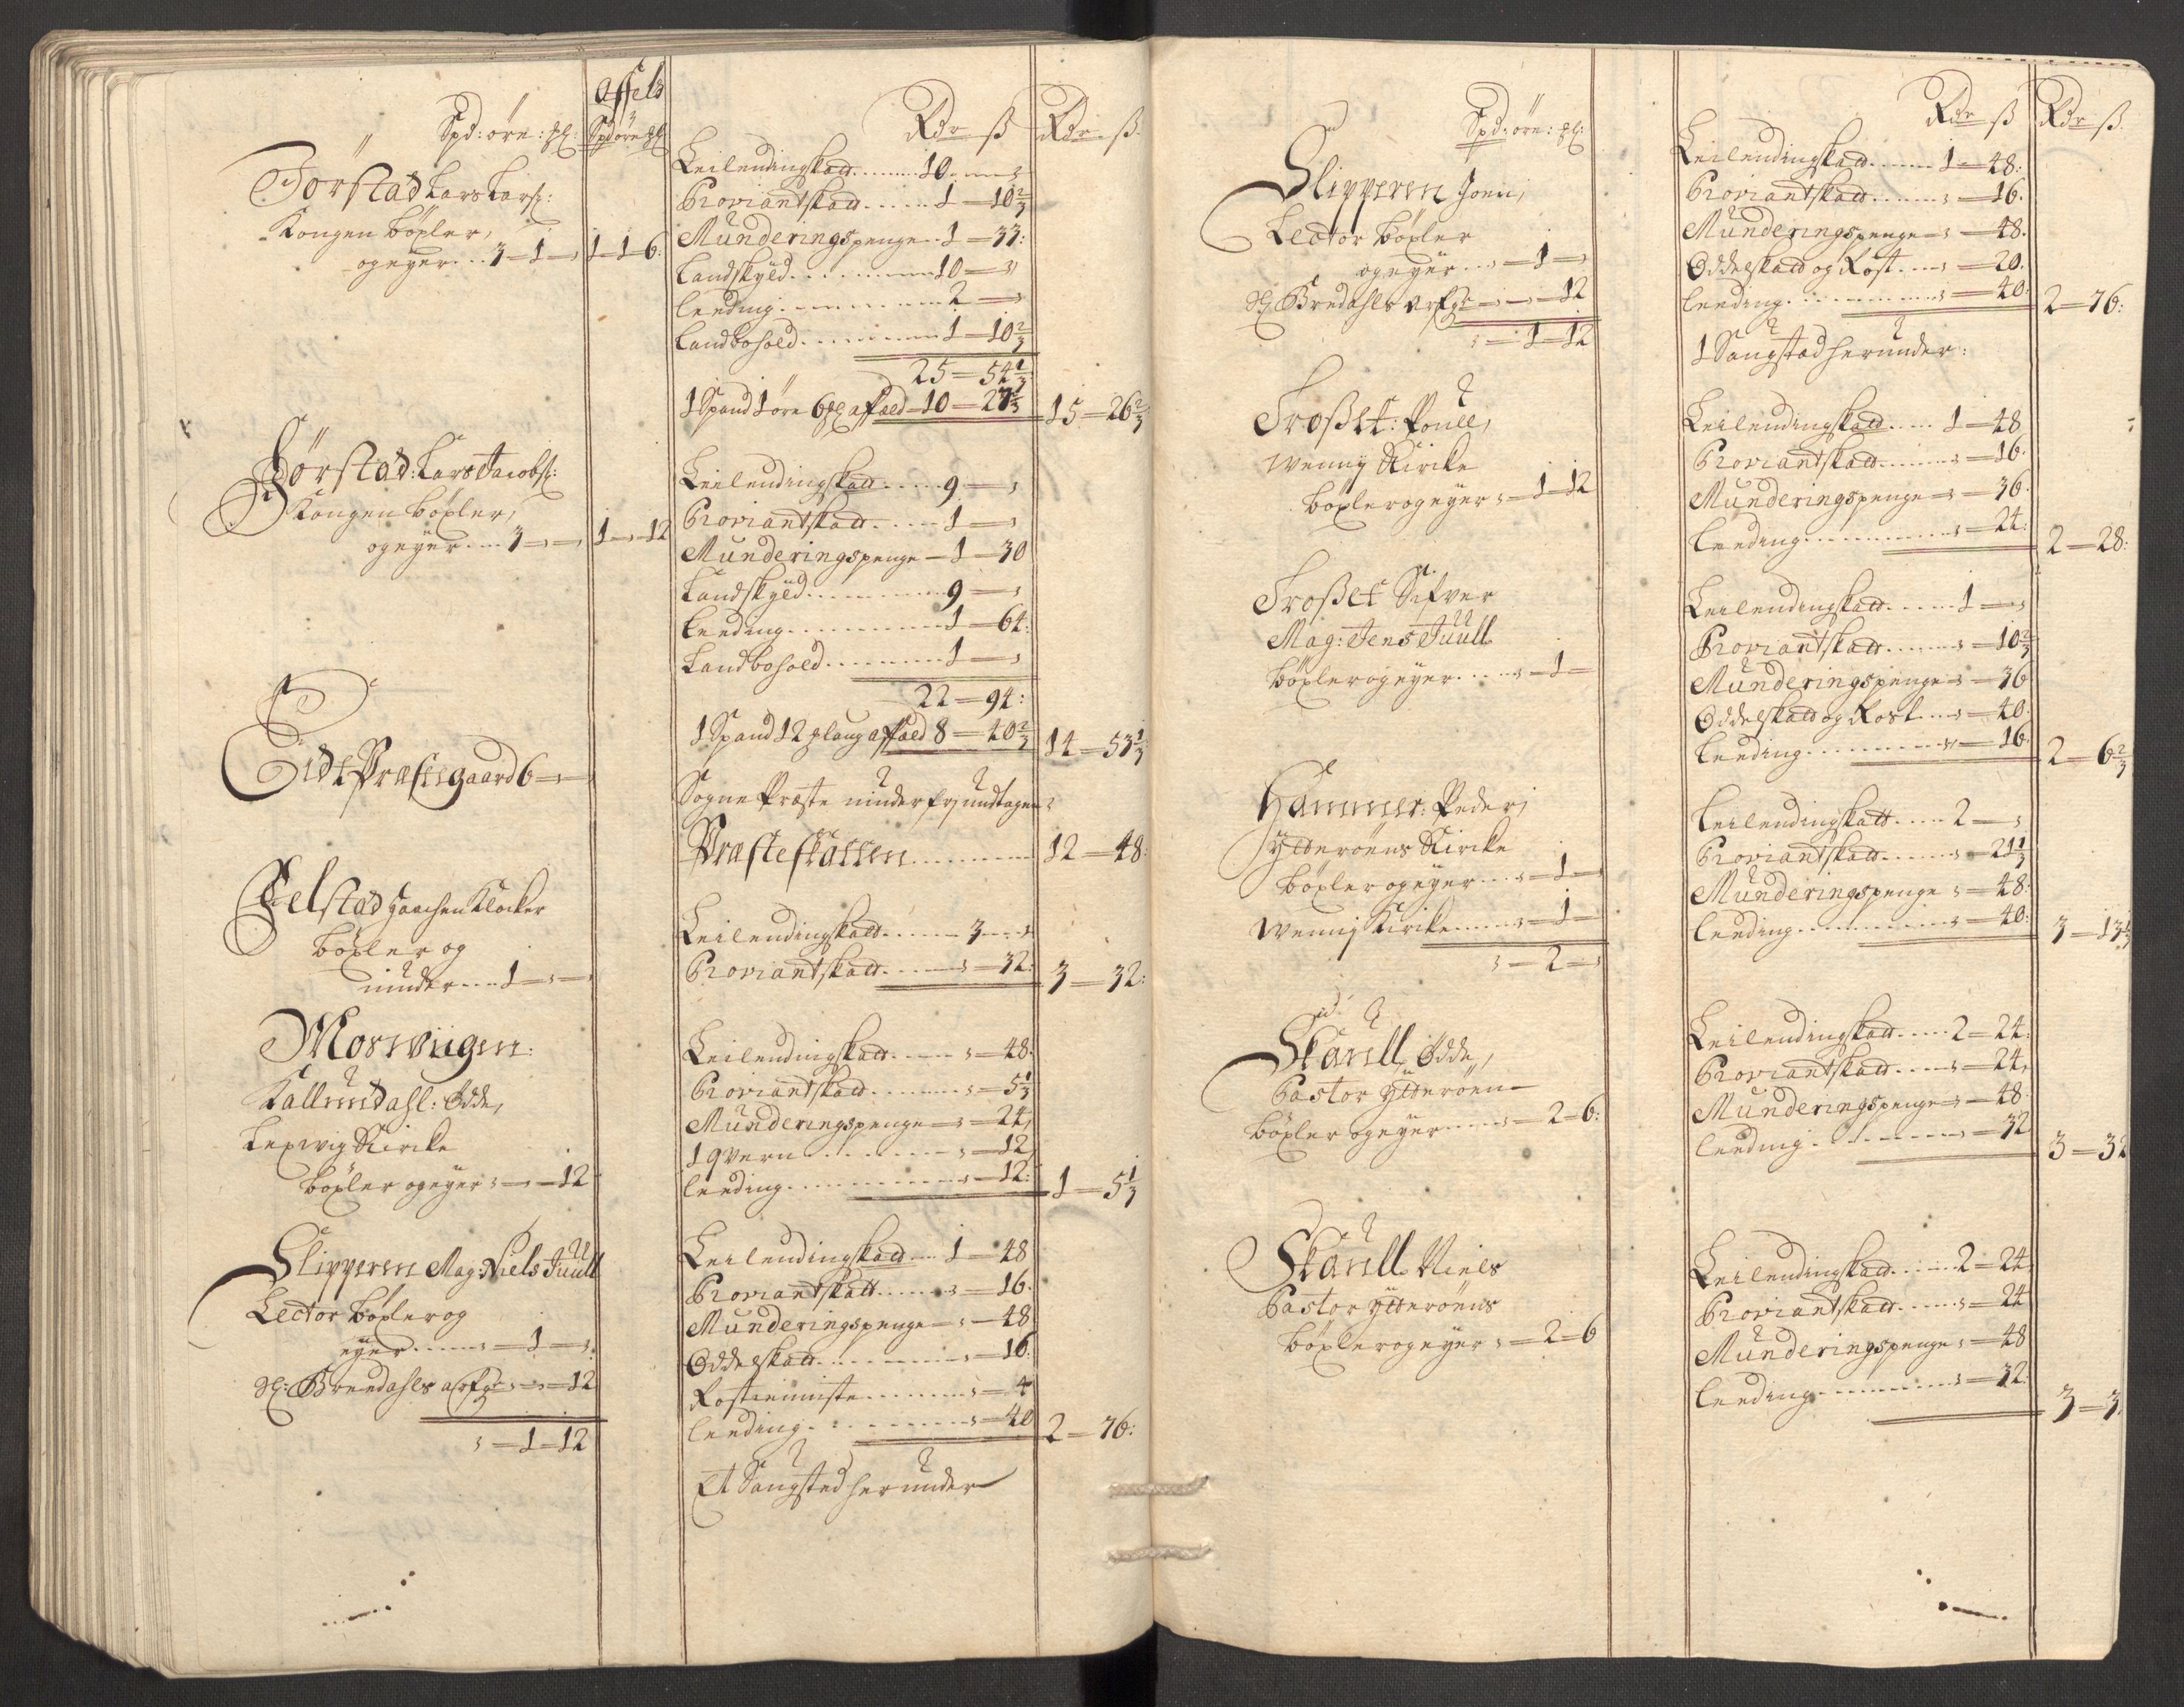 Affeld
Spd: öre: ℔: Spd öre ℔ Rdr ß Rdr ß
Förstad Lars Lars:
Kongen böxler,
og eyer . . . 3 – 1 – „ 1 – 1 – 6
Leilendingskatt . . . . . 10 – „
Proviantskatt . . . . . 1 – 10 2/3
Munderingspenge . . 1 – 33:
Landskyld . . . . . . 10 – „
Leeding . . . . . . 2 – „
Landbohold . . . . . 1 – 10 2/3
25 – 54 1/3
1 Spand 1 öre 6 ℔ affald – 10 – 27 2/3 15 – 26 2/3
Förstad: Lars Jacobs:
Kongen böxler,
og eyer . . . 3 – „ – „ 1 – „ – 12
Leilendingskatt . . . . . 9 – „
Proviantskatt . . . . . 1 – „
Munderingspenge – 1 – 30
Landskyld . . . . . . 9 – „
Leeding . . . . . . 1 – 64:
Landbohold . . . . . 1 – „
22 – 94:
1 Spand 12 affald 8 – 40 2/3 14 – 53 1/3
Eide Præstegaard 6 – „ –
Sogne Præste undtagen:
Præsteskatten . . . . . . 12 – 48:
Felstad Klocker
böxler og
. . . 1 – „ –
Leilendingskatt . . . . . 3 – „
Proviantskatt . . . . . „ – 32: 3 – 32:
Mosviigen:
Kallundahl: Odde,
Lexvig Kircke
böxler og eyer „ – „ – 12
Leilendingskatt . . . . „ – 48:
Proviantskatt . . . . . „ – 5 1/3
Munderingspenge – „ – 24,
1 qvern . . . . . . „ – 12
Leeding . . . . . . „ – 12: 1 – 5 1/3
Slipperen Mag: Niels Juull
Lector böxler og
eyer . . . . „ – 1 – „
Sl: Brendahls arfg: „ – „ – 12
„ – 1 – 12
Leilendingskatt . . . 1 – 48
Proviantskatt . . . . „ – 16:
Munderingspenge – „ – 48
Oddelskatt . . . . . . „ – 16
Rostieniste . . . . . „ – 4
Leeding . . . . . . „ – 40 2 – 76:
Et Saugsted herunder
Spd: öre: ℔: Rdr ß Rdr ß
Slipperen Joen,
Lector böxler
og eyer . . „ – 1 – „
Sl: Bredahls arfg: „ – „ – 12
„ – 1 – 12
Leilendingskatt . . . . . 1 – 48:
Proviantskatt . . . . . „ – 16.
Munderingspenge – „ – 48.
Oddelskatt og Rost . . . „ – 20.
Leeding . . . . . . . „ – 40: 2 – 76:
1 Saugstad herunder:
Troßet: Pouell,
Wennig Kircke
böxler og eyer „ – 1 – 12
Leilendingskatt . . . . 1 – 48
Proviantskatt . . . . . „ – 16.
Munderingspenge – „ – 36.
Leeding . . . . . . . „ – 24: 2 – 28:
Troßet Sifver
Mag: Jens Juull
böxler og eyer . . . „ – 1 –
Leilendingskatt . . . . 1 – „
Proviantskatt . . . . . „ – 10 2/3
Munderingspenge – „ – 36
Oddelskatt og Rost . . „ – 40.
Leeding . . . . . . . „ – 16. 2 – 6 2/3
Hammer: Peder,
Ytterøens Kircke
böxler og eyer . . . „ – 1 – „
Wennig Kircke . . . . „ – 1 –
„ – 2 – „
Leilendingskatt . . . . 2 – „
Proviantskatt . . . . . „ – 21 1/3
Munderingspenge „ – 48:
Leeding . . . . . . . „ – 40: 3 – 13 1/3
Skaull Odde,
Pastor Ytterøen
böxler og eyer . . . . „ – 2 – 6:
Leilendingskatt . . . . 2 – 24:
Proviantskatt . . . . . „ – 24,
Munderingspenge – „ – 48.
Leeding . . . . . . . „ – 32 3 – 32
Skaull Niels
Pastor Ytterøens
böxler og eyer „ – 2 – 6
Leilendingskatt . . . . . 2 – 24
Proviantskatt . . . . . „ – 24
Munderingspenge „ – 48
Leeding . . . . . . . „ – 32: 3 – 3